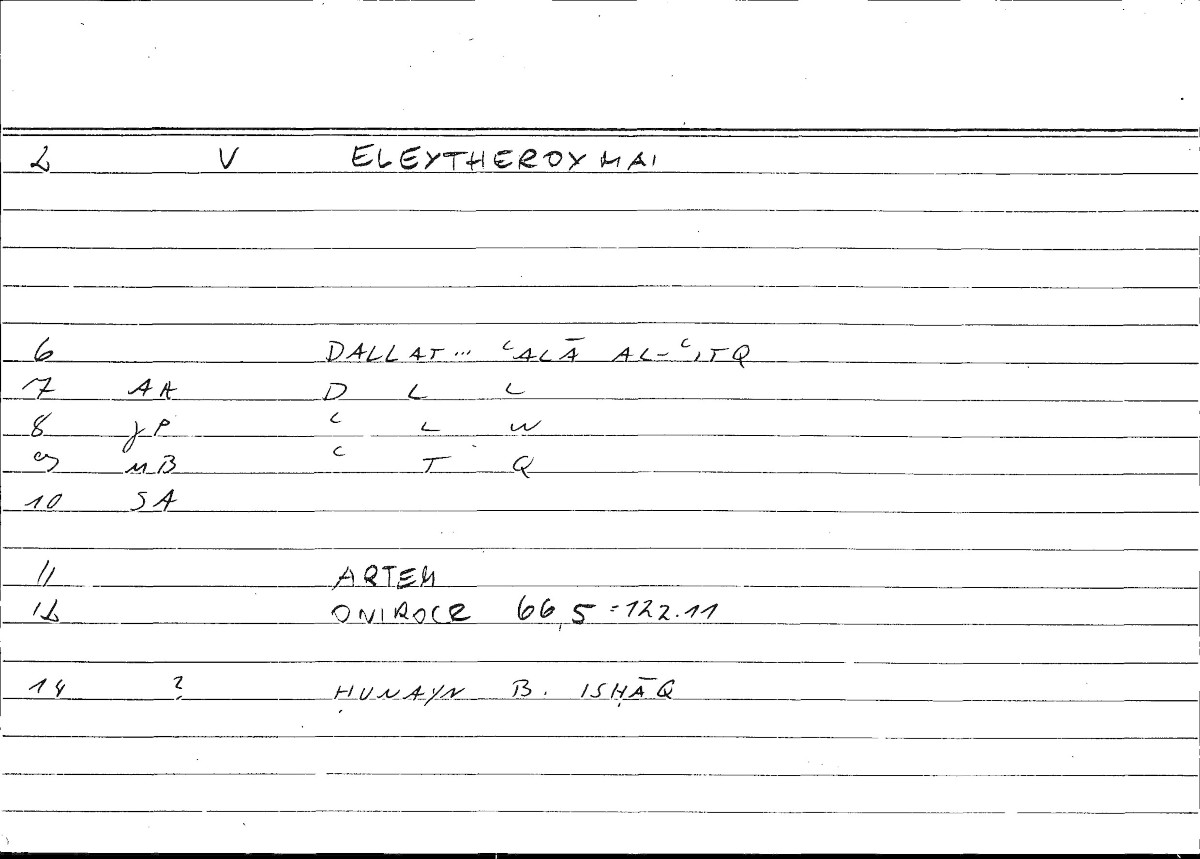 2 V ELEYTHEROYMAI
6 DALLAT... ʿALĀ AL-ʿITQ
7 AA D L L
8 JP ʿ L W
9 MB ʿ T Q
10 SA
11 ARTEM
12 ONIROCR 66,5=122.11
14 ? ḤUNAYN B. ISḤĀQ